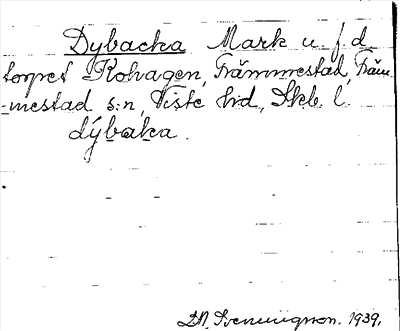 Dybacka Mark u. f.d.
torpet Kohagen, Främmestad, Främ-
mestad s:n, Viste hd, Skb. l.
dýbaka.
1939.